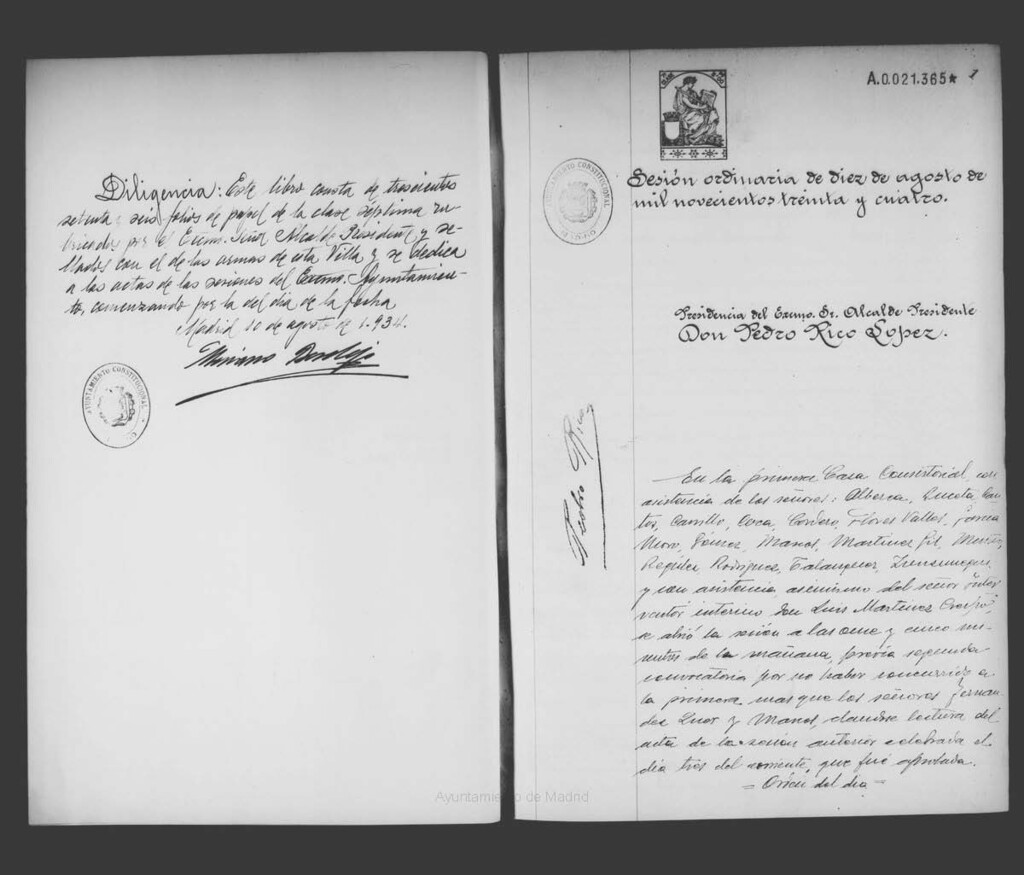 Diligencia: Este libro consta de trescientos
setenta y seis folios de papel de la clase séptima ru-
bricados por el Excmo. Señor Alcalde Presidente y se-
llados con el de las armas de esta Villa y se dedica
a las actas de las sesiones del Excmo. Ayuntamien-
to, comenzando por la del dia de la fecha
Madrid 10 de agosto de 1.934.
Mariano
AYUNTAMIENTO CONSTITUCIONAL
A.0.021.365*
AYUNTAMIENTO CONSTITUCIONAL
MADRID
Sesión ordinaria de diez de agosto de
mil novecientos treinta y cuatro.
Presidencia del Excmo. Sr. Alcalde Presidente
Don Pedro Rico López.
Pedro Rico
En la primera Casa Consistorial, con
asistencia de los señores: Alberca,
Carrillo, Coca, Cordero, Flores Valles, García
Moro, Gómez, Marcos, Martínez Gil,
Regúlez, Rodríguez, Talanquer,
y con asistencia asimismo del señor Inter
ventor interino don Luis Martínez
se abrió la sesión a las once y cinco mi-
nutos de la mañana, previa segunda
convocatoria por no haber concurrido a
la primera mas que los señores Fernan-
dez y dandose lectura del
acta de la sesión anterior celebrada el
día tres del corriente, que fué aprobada.
= Orden del dia =
Ayuntamiento de Madrid